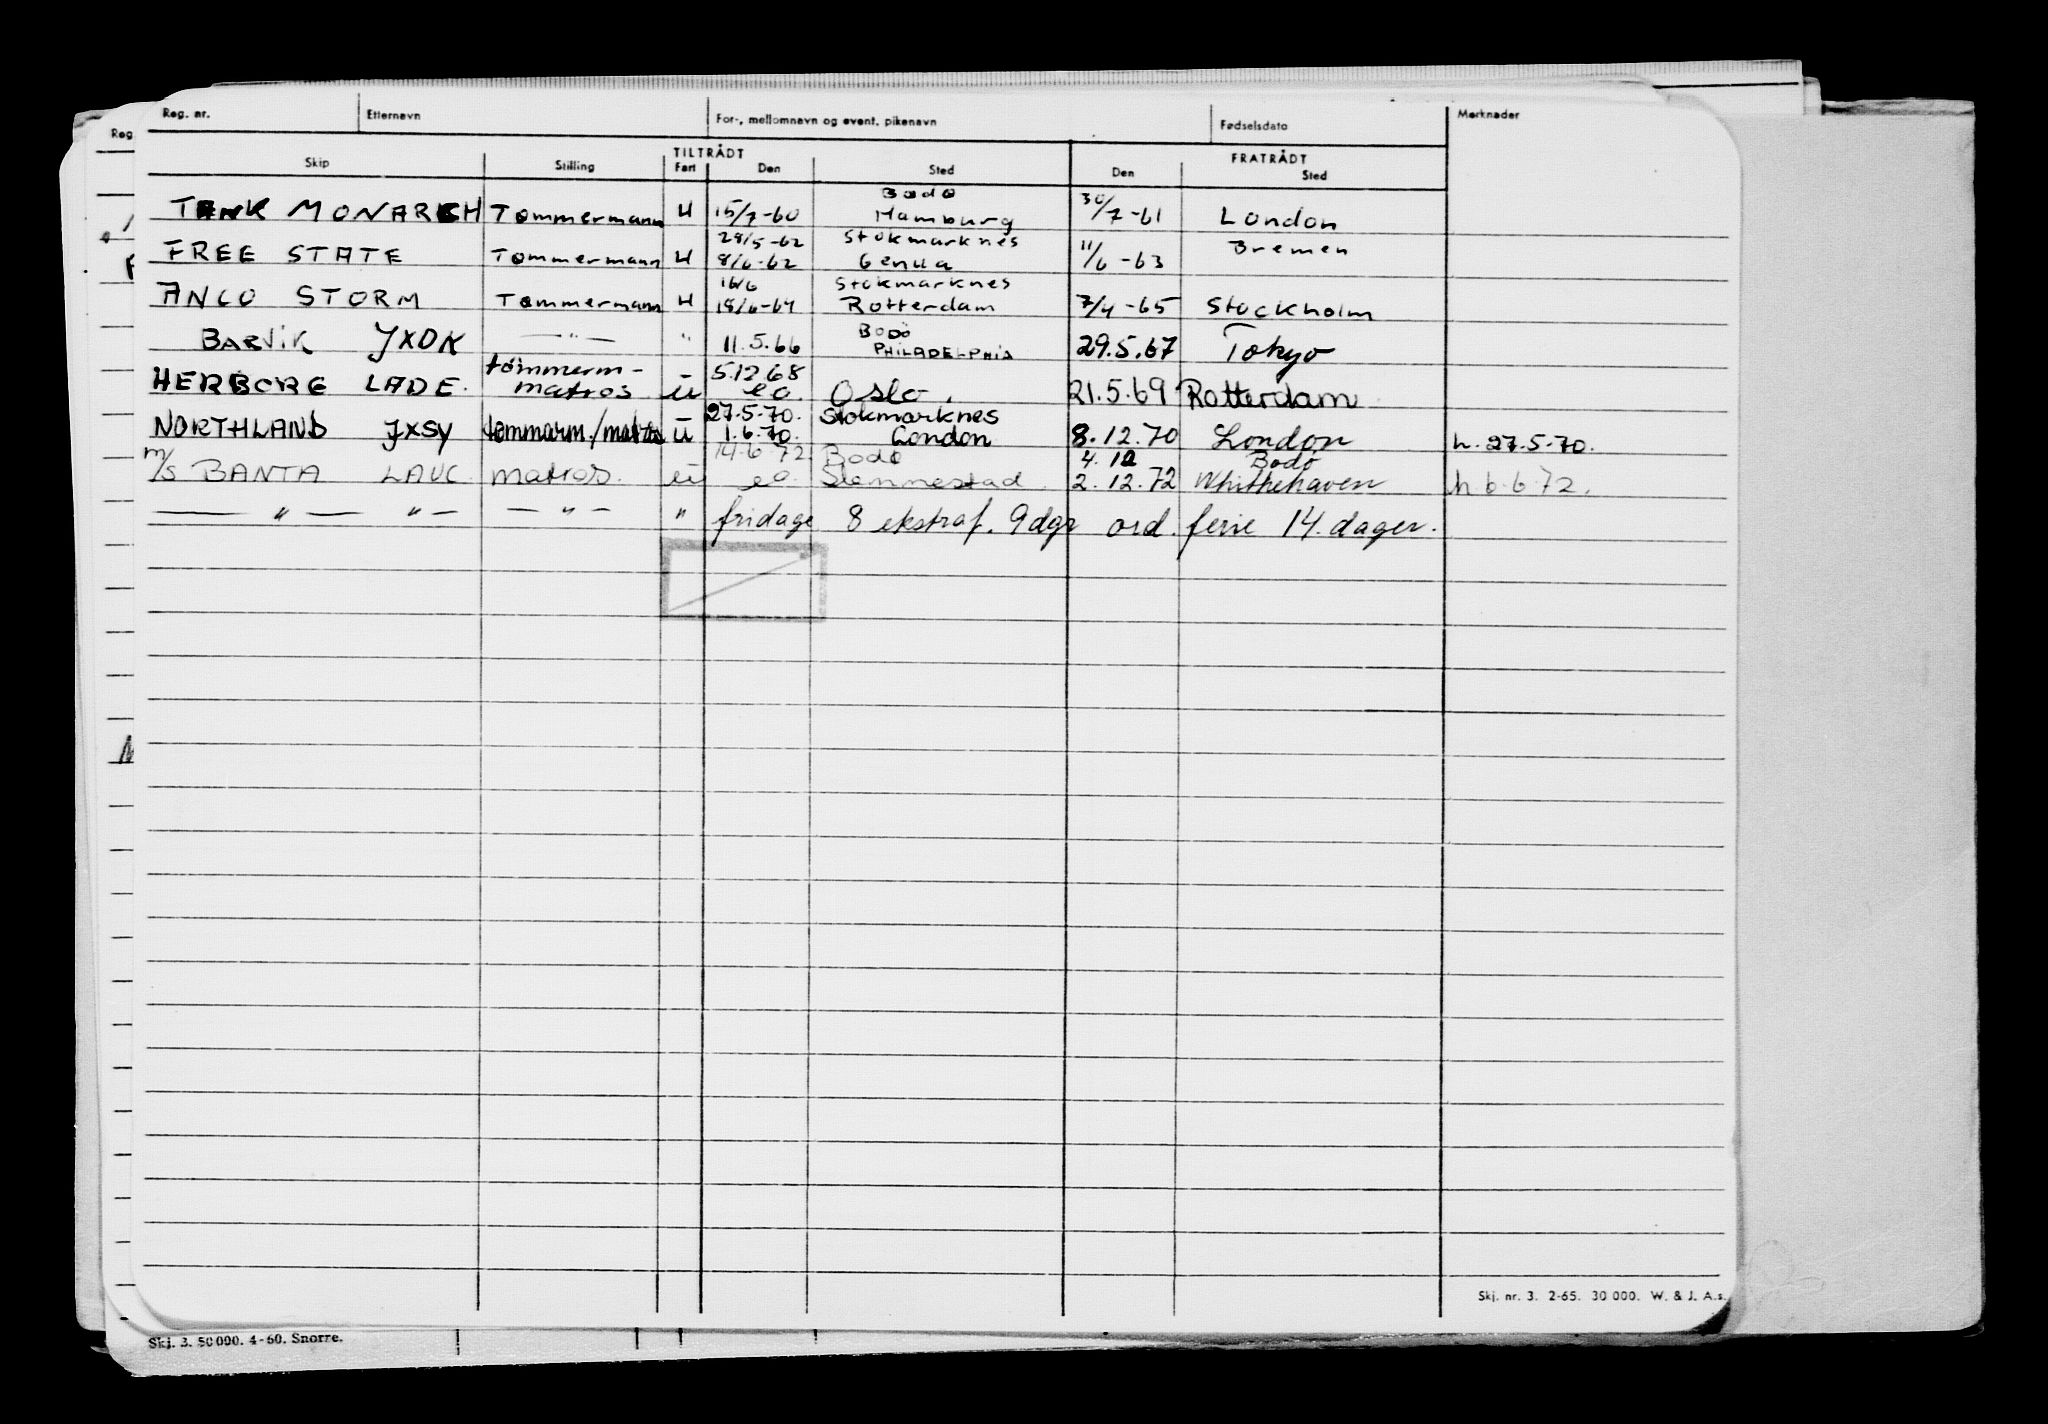 Reg. nr. Etternavn For-, mellomnavn og event. pikenavn Fødselsdato Merknader
TILTRÅDT FRATRÅDT
Skip Stilling Fart Den Sted Den Sted
Bodø
TANK MONARCH Tømmermann U 15/7-60 Hamburg 30/7-61 London
28/5-62 Stokmarknes
FREE STATE Tømmermann U 8/6-62 Genua 11/6-63 Bremen
16/6 Stokmarknes
ANCO STORM Tømmermann U 18/6-64 Rotterdam 7/4-65 Stockholm
BODØ
BARVIK JXDK —"— " 11.5.66 PHILADELPHIA 29.5.67 Tokyo
tømmerm- 5.12.68
HERBORG LADE. matros ū eo. Oslo. 21.5.69 Rotterdam
27.5.70. Stokmarknes
NORTHLAND JXSY tømmerm./matros ū 1.6.70. London 8.12.70 London h. 27.5.70.
14.6.72 Bodø 4.12 Bodø
m/s BANTA LAUC. matros. ū eo. Slemmestad. 2.12.72 Whithehaven h 6.6.72.
—"— "— —"— " fridage 8 ekstraf. 9 dgr ord. ferie 14. dager.
Skj. nr. 3. 2-65. 30 000. W. & J. A.s.
Skj. 3. 50 000. 4-60. Snorre.